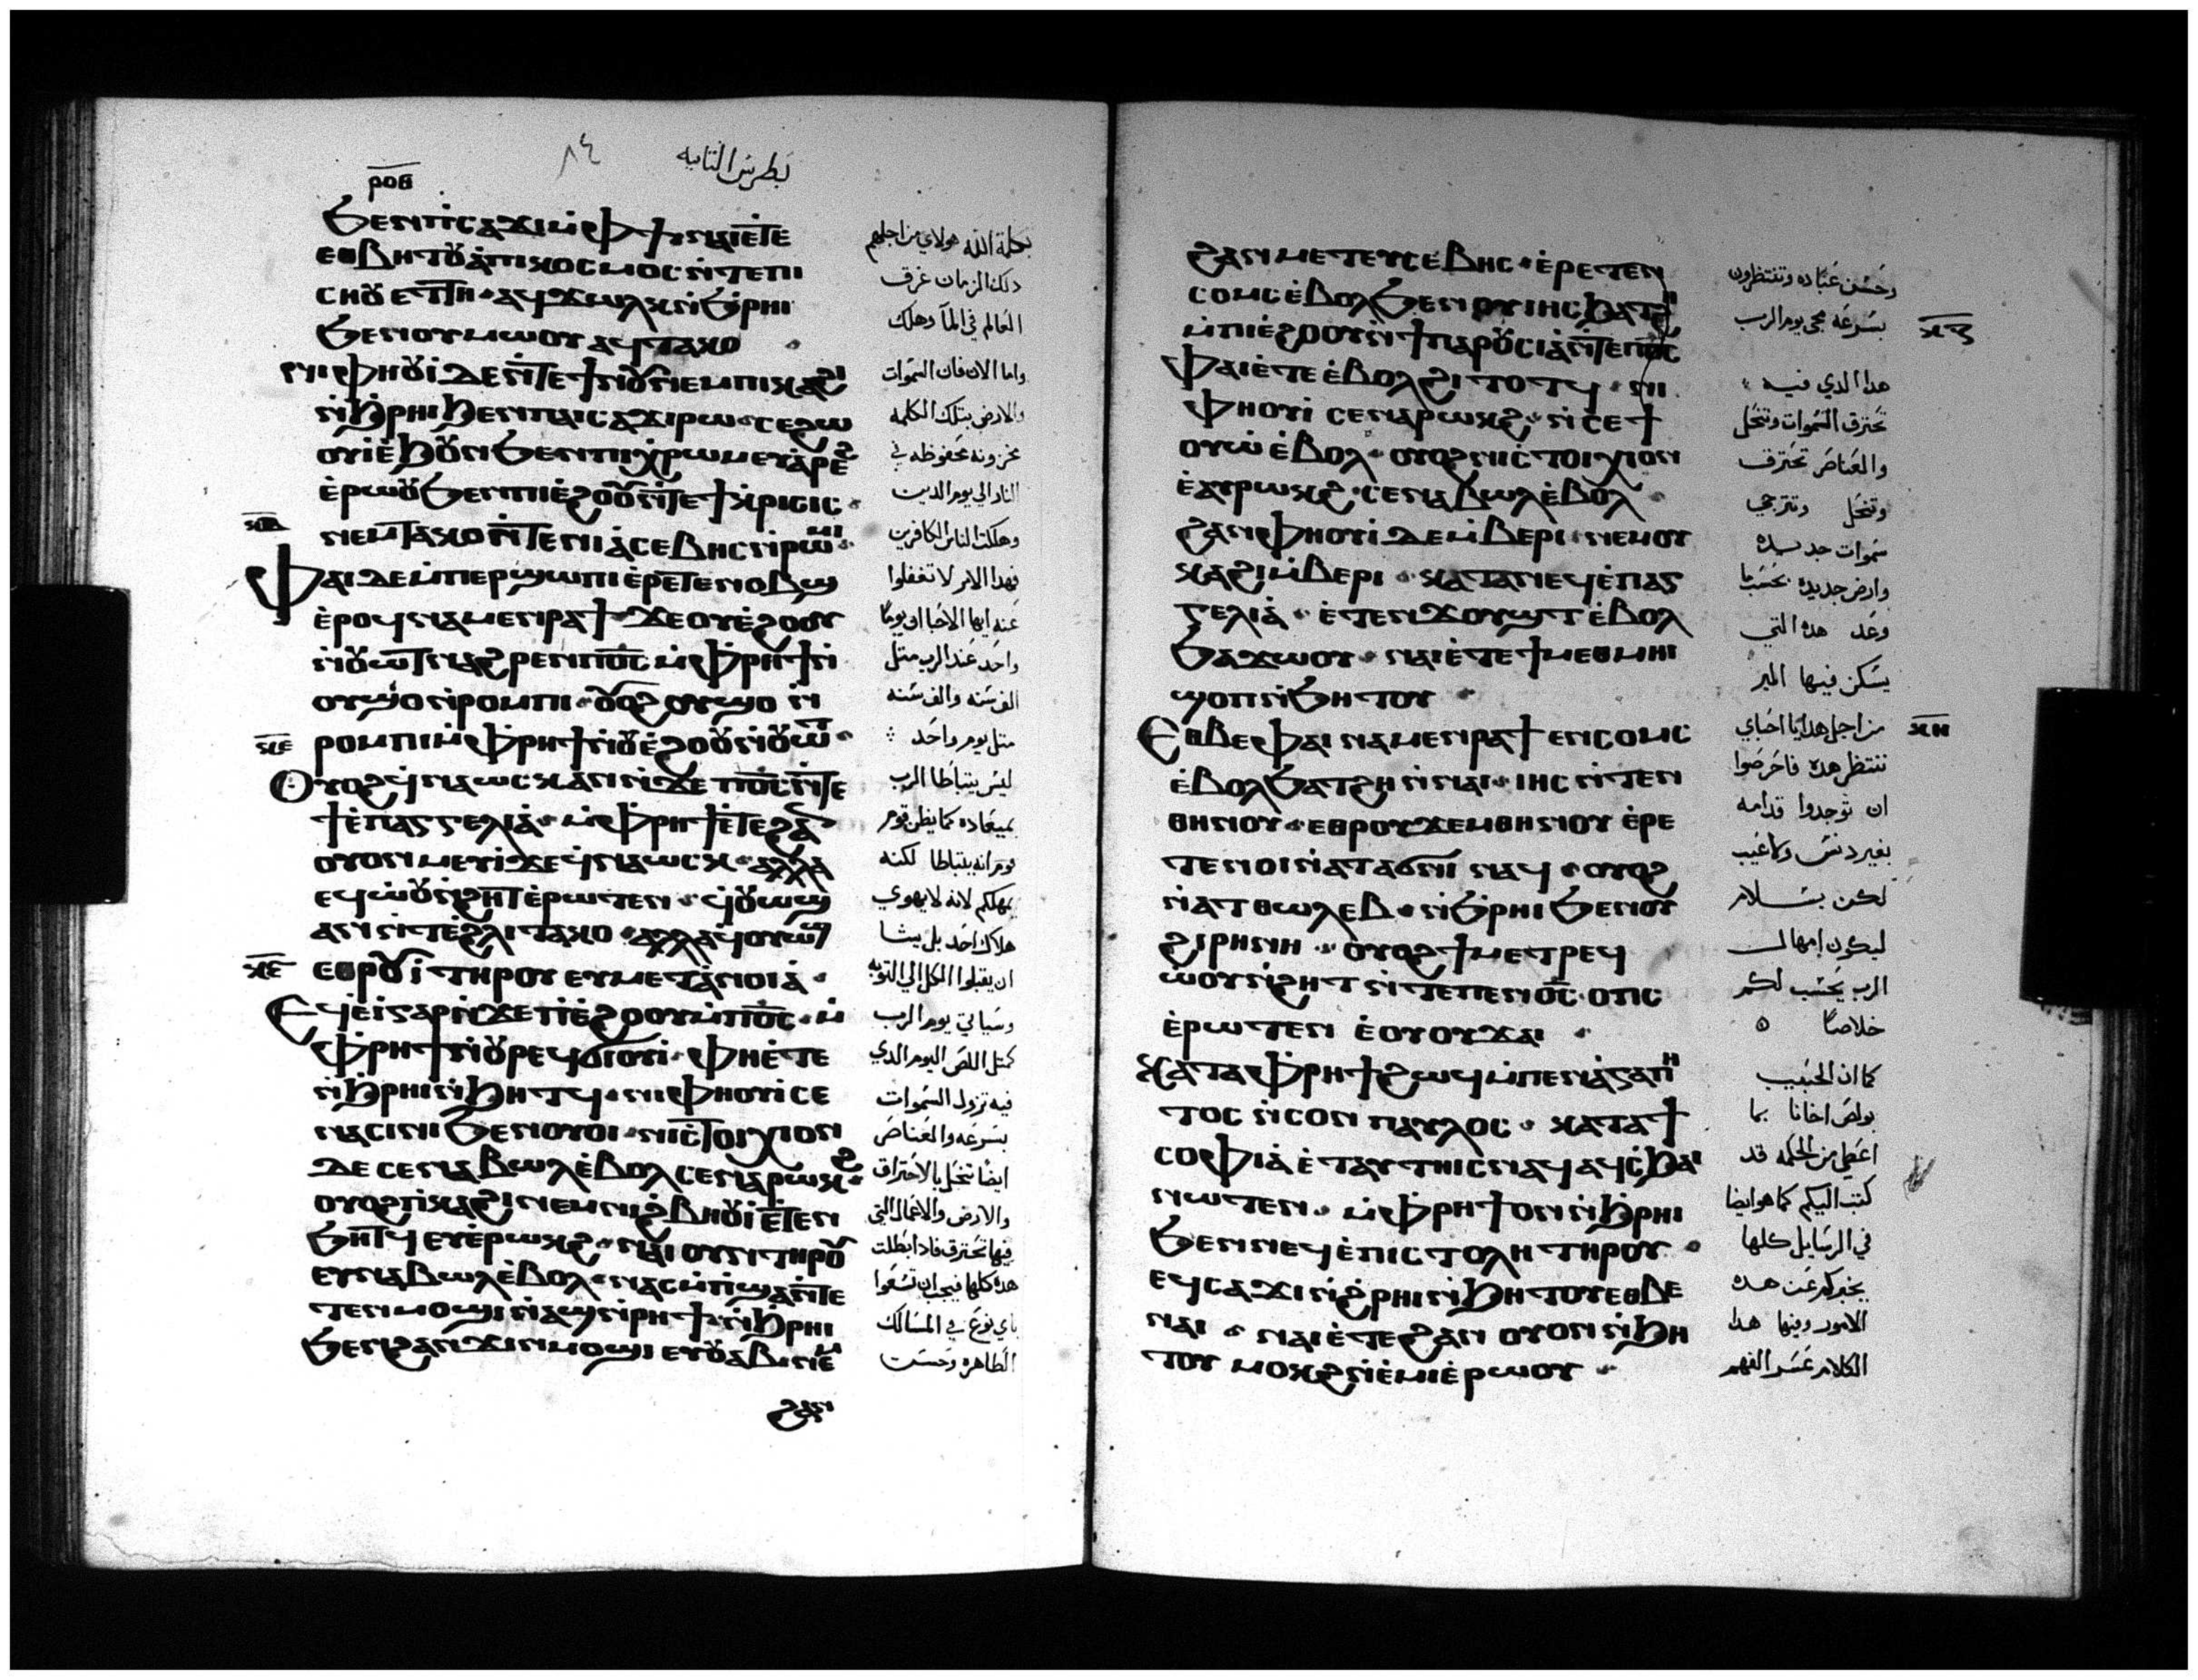 بطرس الثانيه
٨٤
ⲣⲟⲑ
ϧⲉⲛⲡⲓⲥⲁϫⲓⲙ̀ⲫϯ ⲛⲁⲓⲉ̀ⲧⲉ
ⲉⲑⲃⲏⲧⲟⲩ ⲁ̀ⲡⲓⲕⲟⲥⲙⲟⲥ ⲛ̀ⲧⲉⲡⲓ
ⲥⲏⲟⲩ ⲉⲧⲧⲏ · ⲁϥϫⲱⲗⲕ ⲛ̀ϧ̀ⲣⲏⲓ
ϧⲉⲛⲟⲩⲙⲱⲟⲩ ⲁϥⲧⲁⲕⲟ
ⲛⲓⲫⲏⲟⲩⲓ̀ ⲇⲉ ⲛ̀ⲧⲉϯⲛⲟⲩ ⲛⲉⲙⲡⲓⲕⲁϩⲓ
ⲛ̀ϧ̀ⲣⲏⲓ ϧⲉⲛⲡⲁⲓⲥⲁϫⲓ ⲣⲱ · ⲥⲉϩⲱ
ⲟⲩⲓ ⲉ̀ϧⲟⲩⲛ ϧⲉⲛⲡⲓⲭ̀ⲣⲱⲙ ⲉⲩⲁ̀ⲣⲉϩ
ⲉ̀ⲣⲱⲟⲩ ϧⲉⲛⲡⲓⲉ̀ϩⲟⲟⲩ ⲛ̀ⲧⲉϯⲕ̀ⲣⲓⲥⲓⲥ ·
ⲛⲉⲙⲡⲧⲁⲕⲟ ⲛ̀ⲧⲉⲛⲓⲁ̀ⲥⲉⲃⲏⲥ ⲛ̀ⲣⲱⲙⲓ ·
ⲫⲁⲓ ⲇⲉ ⲙ̀ⲡⲉⲣϣⲱⲡⲓ ⲉ̀ⲣⲉⲧⲉⲛⲟⲃϣ
ⲉ̀ⲣⲟϥ ⲛⲁⲙⲉⲛⲣⲁϯ · ϫⲉ ⲟⲩⲉ̀ϩⲟⲟⲩ
ⲛ̀ⲟⲩⲱⲧ ⲛⲁϩⲣⲉⲛⲡⲟ̅ⲥ̅ ⲙ̀ⲫ̀ⲣⲏϯ ⲛ̀
ⲟⲩϣⲟ ⲛ̀ⲣⲟⲙⲡⲓ · ⲟⲩⲟϩ ⲟⲩϣⲟ ⲛ̀
ⲣⲟⲙⲡⲓ ⲙ̀ⲫ̀ⲣⲏϯ ⲛ̀ⲟⲩⲉ̀ϩⲟⲟⲩ ⲛ̀ⲟⲩⲱⲧ ·
ⲟⲩⲟϩ ϥ̀ⲛⲁⲱⲥⲕ ⲁⲛ ⲛ̀ϫⲉ ⲡⲟ̅ⲥ̅ ⲛ̀ⲧⲉ
ϯⲉ̀ⲡⲁⲅⲅⲉⲗⲓⲁ̀ · ⲙ̀ⲫ̀ⲣⲏϯ ⲉ̀ⲧⲉϩⲁⲛ
ⲟⲩⲟⲛ ⲙⲉⲩⲓ̀ ϫⲉ ϥ̀ⲛⲁⲱⲥⲕ · ⲁⲗⲗⲁ
ⲉϥⲱ̀ⲟⲩ ⲛ̀ϩⲏⲧ ⲉ̀ⲣⲱⲧⲉⲛ · ϥ̀ⲟⲩⲱϣ
ⲁⲛ ⲛ̀ⲧⲉϩ̀ⲗⲓ ⲧⲁⲕⲟ · ⲁⲗⲗⲁ ϥ̀ⲟⲩⲱϣ
ⲕⲋ̅ ⲉⲑⲣⲟⲩⲓ̀ ⲧⲏⲣⲟⲩ ⲉⲩⲙⲉⲧⲁ̀ⲛⲟⲓⲁ̀ ·
ⲉϥⲉ̀ⲓ̀ ⲅⲁⲣ ⲛ̀ϫⲉ ⲡⲓⲉ̀ϩⲟⲟⲩ ⲙ̀ⲡⲟ̅ⲥ̅ · ⲙ̀
ⲫ̀ⲣⲏϯ ⲛ̀ⲟⲩⲣⲉϥϭⲓⲟⲩⲓ̀ · ⲫⲏⲉ̀ⲧⲉ
ⲛ̀ϧ̀ⲣⲏⲓ ⲛ̀ϧⲏⲧϥ · ⲛⲓⲫⲏⲟⲩⲓ̀ ⲥⲉ
ⲛⲁⲥⲓⲛⲓ ϧⲉⲛⲟⲩⲟⲓ · ⲛⲓⲥ̀ⲧⲟⲓⲭⲓⲟⲛ
ⲇⲉ ⲥⲉⲛⲁⲃⲱⲗ ⲉ̀ⲃⲟⲗ ⲥⲉⲛⲁⲣⲱⲕϩ ·
ⲟⲩⲟϩ ⲡ̀ⲕⲁϩⲓ ⲛⲉⲙ ⲛⲓϩ̀ⲃⲏⲟⲩⲓ̀ ⲉ̀ⲧⲉⲛ
ϧⲏⲧϥ ⲉⲩⲉ̀ⲣⲱⲕϩ · ⲛⲁⲓ ⲟⲩⲛ ⲧⲏⲣⲟⲩ
ⲉⲩⲛⲁⲃⲱⲗ ⲉ̀ⲃⲟⲗ · ⲛⲁⲥⲙ̀ⲡ̀ϣⲁ ⲛ̀ⲧⲉ
ⲧⲉⲛⲙⲟϣⲓ ⲛ̀ⲁϣ ⲛ̀ⲣⲏϯ · ⲛ̀ϧ̀ⲣⲏⲓ
ϧⲉⲛϩⲁⲛϫⲓⲛⲙⲟϣⲓ ⲉⲩⲟⲩⲁⲃ ⲛⲉⲙ
ϩⲁⲛ
بكلمة الله هولاي من اجلهم
دلك الزمان غرق
العالم في الما وهلك
واما الان فان السموات
والارض بتلك الكلمه
مخزونه محفوظه في
النار الي يوم الدين
وهلاك الناس الكافرين
فهدا الامر لا تغفلوا
عنه ايها الاحبا ان يوما
واحد عند الرب متل
الف سنه والف سنه
متل يوم واحد
ليس يتباطا الرب
بميعاده كما يظن قوم
قوم انه يتباطا لكنه
يمهلكم لانه لا يهوي
هلاك احد بل يشا
ان يقبلوا الكل الي التوبه
وسياتي يوم الرب
كمتل اللص اليوم الدي
فيه تزول السموات
بسرعه والعناصر
ايضا تنحل بالاحتراق
والارض والاعمال التي
فيها تحترق فادا بطلت
هده كلها فيجب ان تسعوا
باي نوع في المسالك
الطاهره وحسن
ϩⲁⲛⲙⲉⲧⲉⲩⲥⲉⲃⲏⲥ · ⲉ̀ⲣⲉⲧⲉⲛ
ⲥⲟⲙⲥ ⲉ̀ⲃⲟⲗ ϧⲉⲛⲟⲩⲓⲏⲥ ϧⲁⲧϩⲏ
ⲙ̀ⲡⲓⲉ̀ϩⲟⲟⲩ ⲛ̀ϯⲡⲁⲣⲟⲩⲥⲓⲁ̀ ⲛ̀ⲧⲉⲡⲟ̅ⲥ̅
ⲫⲁⲓ ⲉ̀ⲧⲉ ⲉ̀ⲃⲟⲗϩⲓⲧⲟⲧϥ · ⲛⲓ
ⲫⲏⲟⲩⲓ̀ ⲥⲉⲛⲁⲣⲱⲕϩ · ⲛ̀ⲥⲉϯ
ⲟⲩⲱ̀ ⲉ̀ⲃⲟⲗ · ⲟⲩⲟϩ ⲛⲓⲥ̀ⲧⲟⲓⲭⲓⲟⲛ
ⲉ̀ⲩⲣⲱⲕϩ · ⲥⲉⲛⲁⲃⲱⲗ ⲉ̀ⲃⲟⲗ ·
ϩⲁⲛⲫⲏⲟⲩⲓ̀ ⲇⲉ ⲙ̀ⲃⲉⲣⲓ · ⲛⲉⲙⲟⲩ
ⲕⲁϩⲓ ⲙ̀ⲃⲉⲣⲓ · ⲕⲁⲧⲁ ⲛⲉϥⲉ̀ⲡⲁⲅ
ⲅⲉⲗⲓⲁ̀ · ⲉ̀ⲧⲉⲛϫⲟⲩϣⲧ ⲉ̀ⲃⲟⲗ
ϧⲁϫⲱⲟⲩ · ⲛⲁⲓⲉ̀ⲧⲉ ϯⲙⲉⲑⲙⲏⲓ
ϣⲟⲡ ⲛ̀ϧⲏⲧⲟⲩ ·
ⲉⲑⲃⲉⲫⲁⲓ ⲛⲁⲙⲉⲛⲣⲁϯ ⲉⲛⲥⲟⲙⲥ
ⲉ̀ⲃⲟⲗ ϧⲁⲧϩⲏ ⲛ̀ⲛⲁⲓ · ⲓⲏⲥ ⲛ̀ⲧⲉⲛ
ⲑⲏⲛⲟⲩ · ⲉⲑⲣⲟⲩϫⲉⲙ ⲑⲏⲛⲟⲩ ⲉ̀ⲣⲉ
ⲧⲉⲛⲟⲓ ⲛ̀ⲁⲧⲁϭⲛⲓ ⲛⲁϥ · ⲟⲩⲟϩ
ⲛ̀ⲁⲧⲑⲱⲗⲉⲃ · ⲛ̀ϧ̀ⲣⲏⲓ ϧⲉⲛⲟⲩ
ϩⲓⲣⲏⲛⲏ · ⲟⲩⲟϩ ϯⲙⲉⲧⲣⲉϥ
ⲱ̀ⲟⲩ ⲛ̀ϩⲏⲧ ⲛ̀ⲧⲉⲡⲉⲛⲟ̅ⲥ̅ · ⲟⲡⲥ
ⲉ̀ⲣⲱⲧⲉⲛ ⲉ̀ⲟⲩⲟⲩϫⲁⲓ ·
ⲕⲁⲧⲁⲫ̀ⲣⲏϯ ϩⲱϥ ⲙ̀ⲡⲉⲛⲁ̀ⲅⲁⲡⲏ
ⲧⲟⲥ ⲛ̀ⲥⲟⲛ ⲡⲁⲩⲗⲟⲥ · ⲕⲁⲧⲁϯ
ⲥⲟⲫⲓⲁ̀ ⲉ̀ⲧⲁⲩⲧⲏⲓⲥ ⲛⲁϥ ⲁϥⲥ̀ϧⲁⲓ
ⲛⲱⲧⲉⲛ · ⲙ̀ⲫ̀ⲣⲏϯ ⲟⲛ ⲛ̀ϧ̀ⲣⲏⲓ
ϧⲉⲛⲛⲉϥⲉ̀ⲡⲓⲥⲧⲟⲗⲏ ⲧⲏⲣⲟⲩ ·
ⲉϥⲥⲁϫⲓ ⲛ̀ϩ̀ⲣⲏⲓ ⲛ̀ϧⲏⲧⲟⲩ ⲉⲑⲃⲉ
ⲛⲁⲓ · ⲛⲁⲓ ⲉ̀ⲧⲉϩⲁⲛ ⲟⲩⲟⲛ ⲛ̀ϧⲏ
ⲧⲟⲩ ⲙⲟⲕϩ ⲛ̀ⲉ̀ⲙⲓ ⲉ̀ⲣⲱⲟⲩ ·
وحسن عباده وتنتظرون
بسرعه مجي يوم الرب
هدا الدي فيه
تحترق السموات وتنحل
والعناصر تحترق
وتنحل ونترجي
سموات جديده
وارض جديده بحسب ما
وعد هده التي
يسكن فيها البر
من اجل هدا يا احباي
ننتظر هده فاحرصوا
ان توجدوا قدامه
بغير دنس ولا عيب
لكن بسلام
ليكون امهال
الرب يحسب لكم
خلاصا ه
كما ان الحبيب
بولص اخانا بما
اعطي من الحكمه قد
كتب اليكم كما هو ايضا
في الرسايل كلها
يخبركم عن هده
الامور وفيها هدا
الكلام عسر الفهم
ⲕⲍ
ⲕⲏ